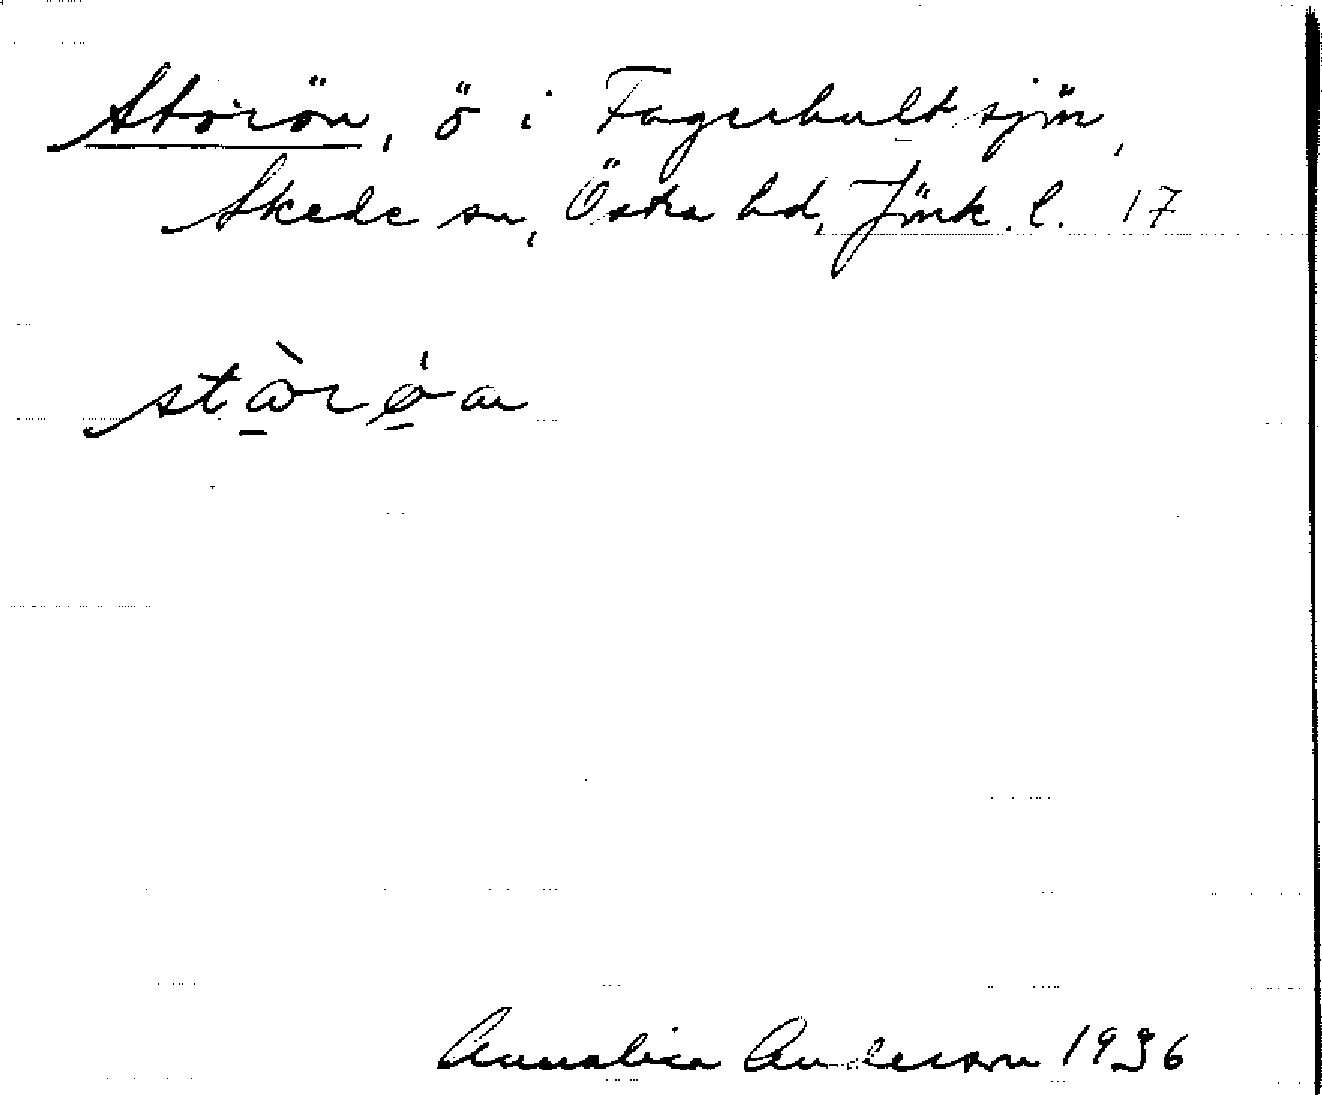 Storön, ö i Fagerhultsjön,
Skede sn, Östra hd, Jönk. l. 17
stòrö́an
Annalisa Anderson 1936